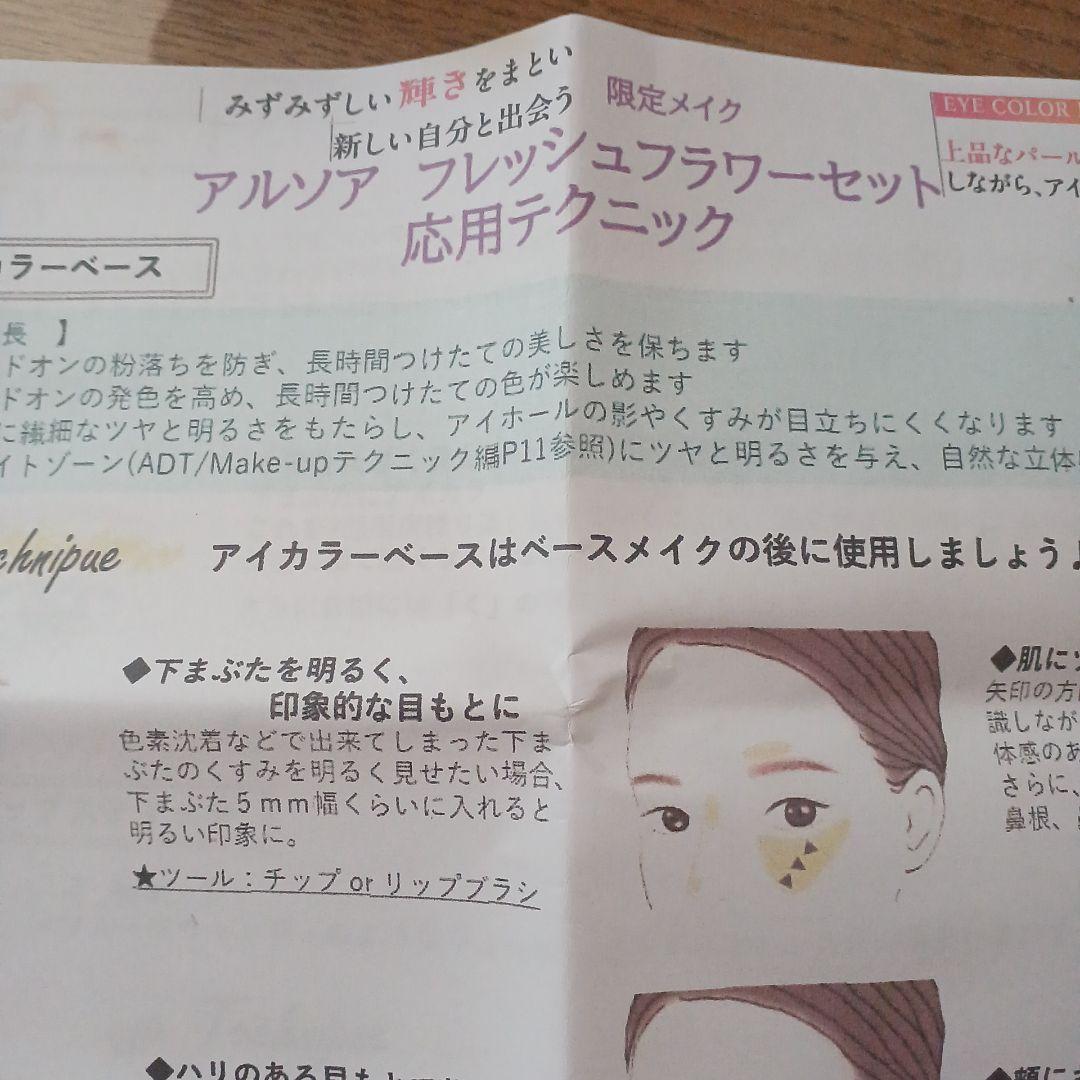 みずみずしい輝きをまとい
新しい自分と出会う
限定メイク
アルソア フレッシュフラワーセット
応用テクニック
EYE COLOR
上品なパール
しながら、アイ
カラーベース
長 】
ドオンの粉落ちを防ぎ、長時間つけたての美しさを保ちます
ドオンの発色を高め、長時間つけたての色が楽しめます
に繊細なツヤと明るさをもたらし、アイホールの影やくすみが目立ちにくくなります
イトゾーン(ADT/Make-upテクニック編P11参照)にツヤと明るさを与え、自然な立体
chnipue
アイカラーベースはベースメイクの後に使用しましょう♪
◆下まぶたを明るく、
印象的な目もとに
色素沈着などで出来てしまった下ま
ぶたのくすみを明るく見せたい場合、
下まぶた5mm幅くらいに入れると
明るい印象に。
★ツール：チップ or リップブラシ
◆肌にツ
矢印の方
識しなが
体感のあ
さらに、
鼻根、
◆ハリのある目もと
◆頬に